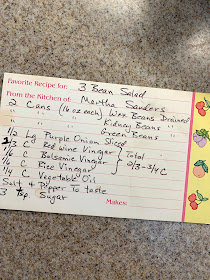 Favorite Recipe for: 3 Bean Salad
From the Kitchen of: Martha Sanders
2 Cans (16 oz each) Wax Beans Drained
" " " Kidney Beans "
" " " Green Beans "
1/2 Lg Purple Onion Sliced
2/3 C Red Wine Vinegar } Total
1/6 C Balsemic Vinegar } 2/3-3/4 C
1/6 C Rice Vinegar
1/4 C Vegetable Oil
Salt & Pepper to taste
3 Sugar
Makes: